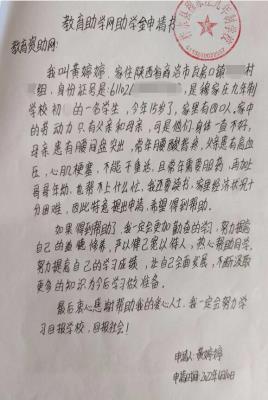 教育助学网助学金申请书
教育资助网:
我叫黄婷婷,家住陕西省商洛市
组,身份证号是:61102 是 家庄九年制
学校初 的一名学生,今年15岁了,家里有四口人,家中
的劳动力只有父亲和母亲,可是他们身体一直不好,
母亲患有腰间盘突出,常年腰酸背疼,父亲患有高血
压,心肌梗塞,不能干重活,且常年需要服药,再加上
哥哥年幼,也帮不上什么忙,我还要读书,家里经济状况十
分困难,因此特意提出申请,希望得到帮助。
如果得到帮助了,我一定会更加勤奋的学习,努力提高
自己的 修养,严以律己宽以待人,热心帮助同学,
努力提高自己的学习成绩,让自己全面发展,不断汲取
更多的知识为今后学习做准备。
最后衷心感谢帮助我的爱心人士,我一定会努力学
习回报学校,回报社会!
申请人:黄婷婷
申请日期:2022年